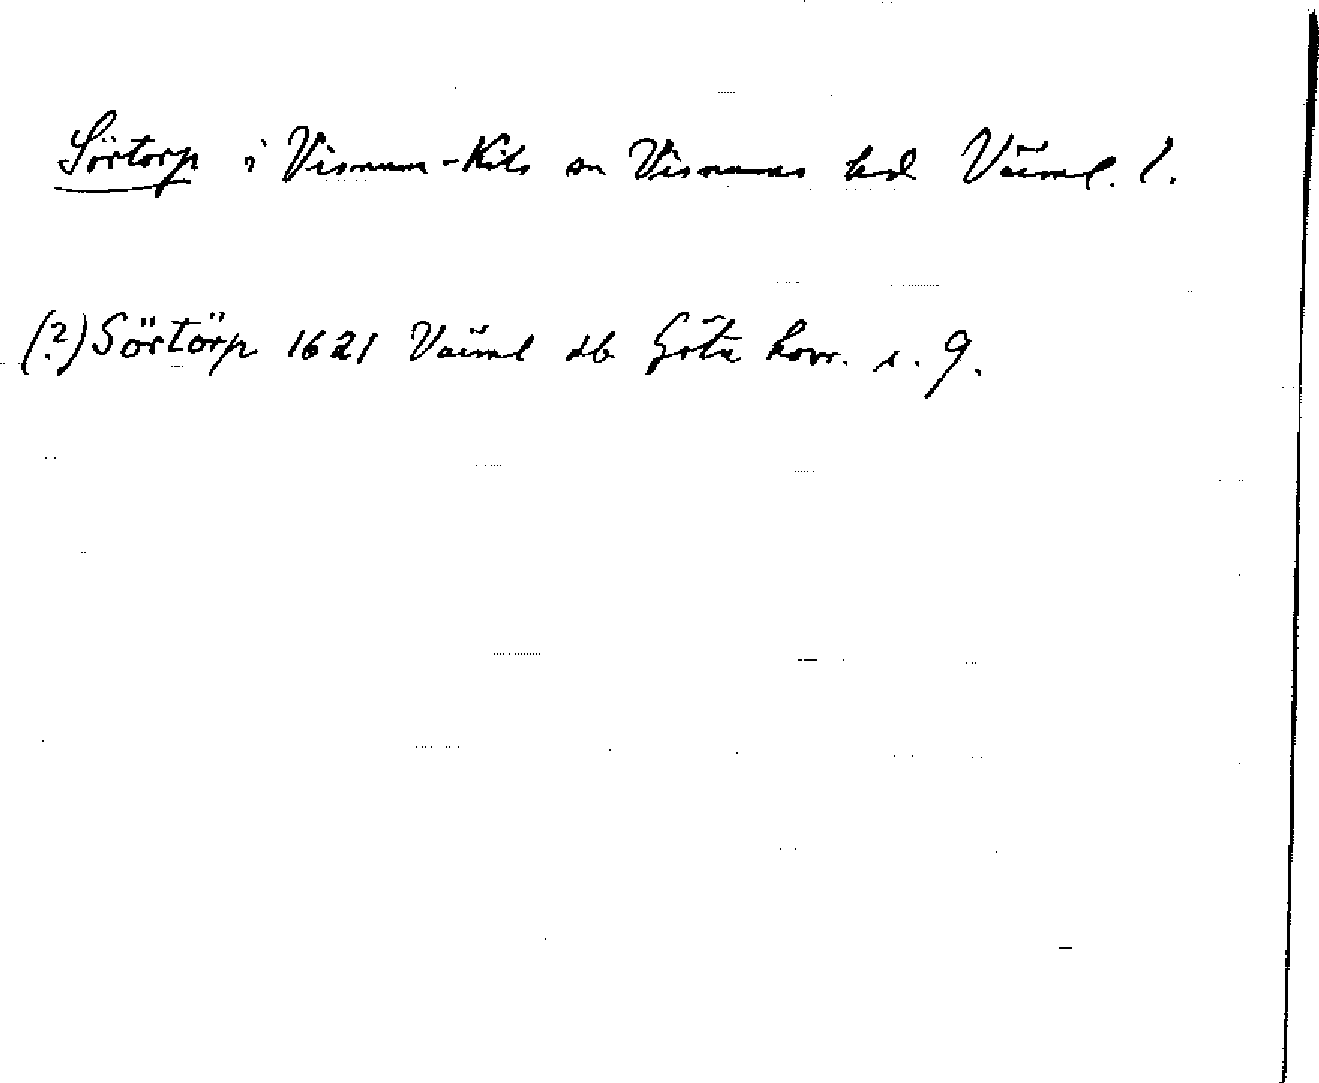 Sörtorp i Visnum-Kils sn Visnums hd Värml. l.
(?) Sörtörp 1621 Värml db Göta hovr. s. 9.